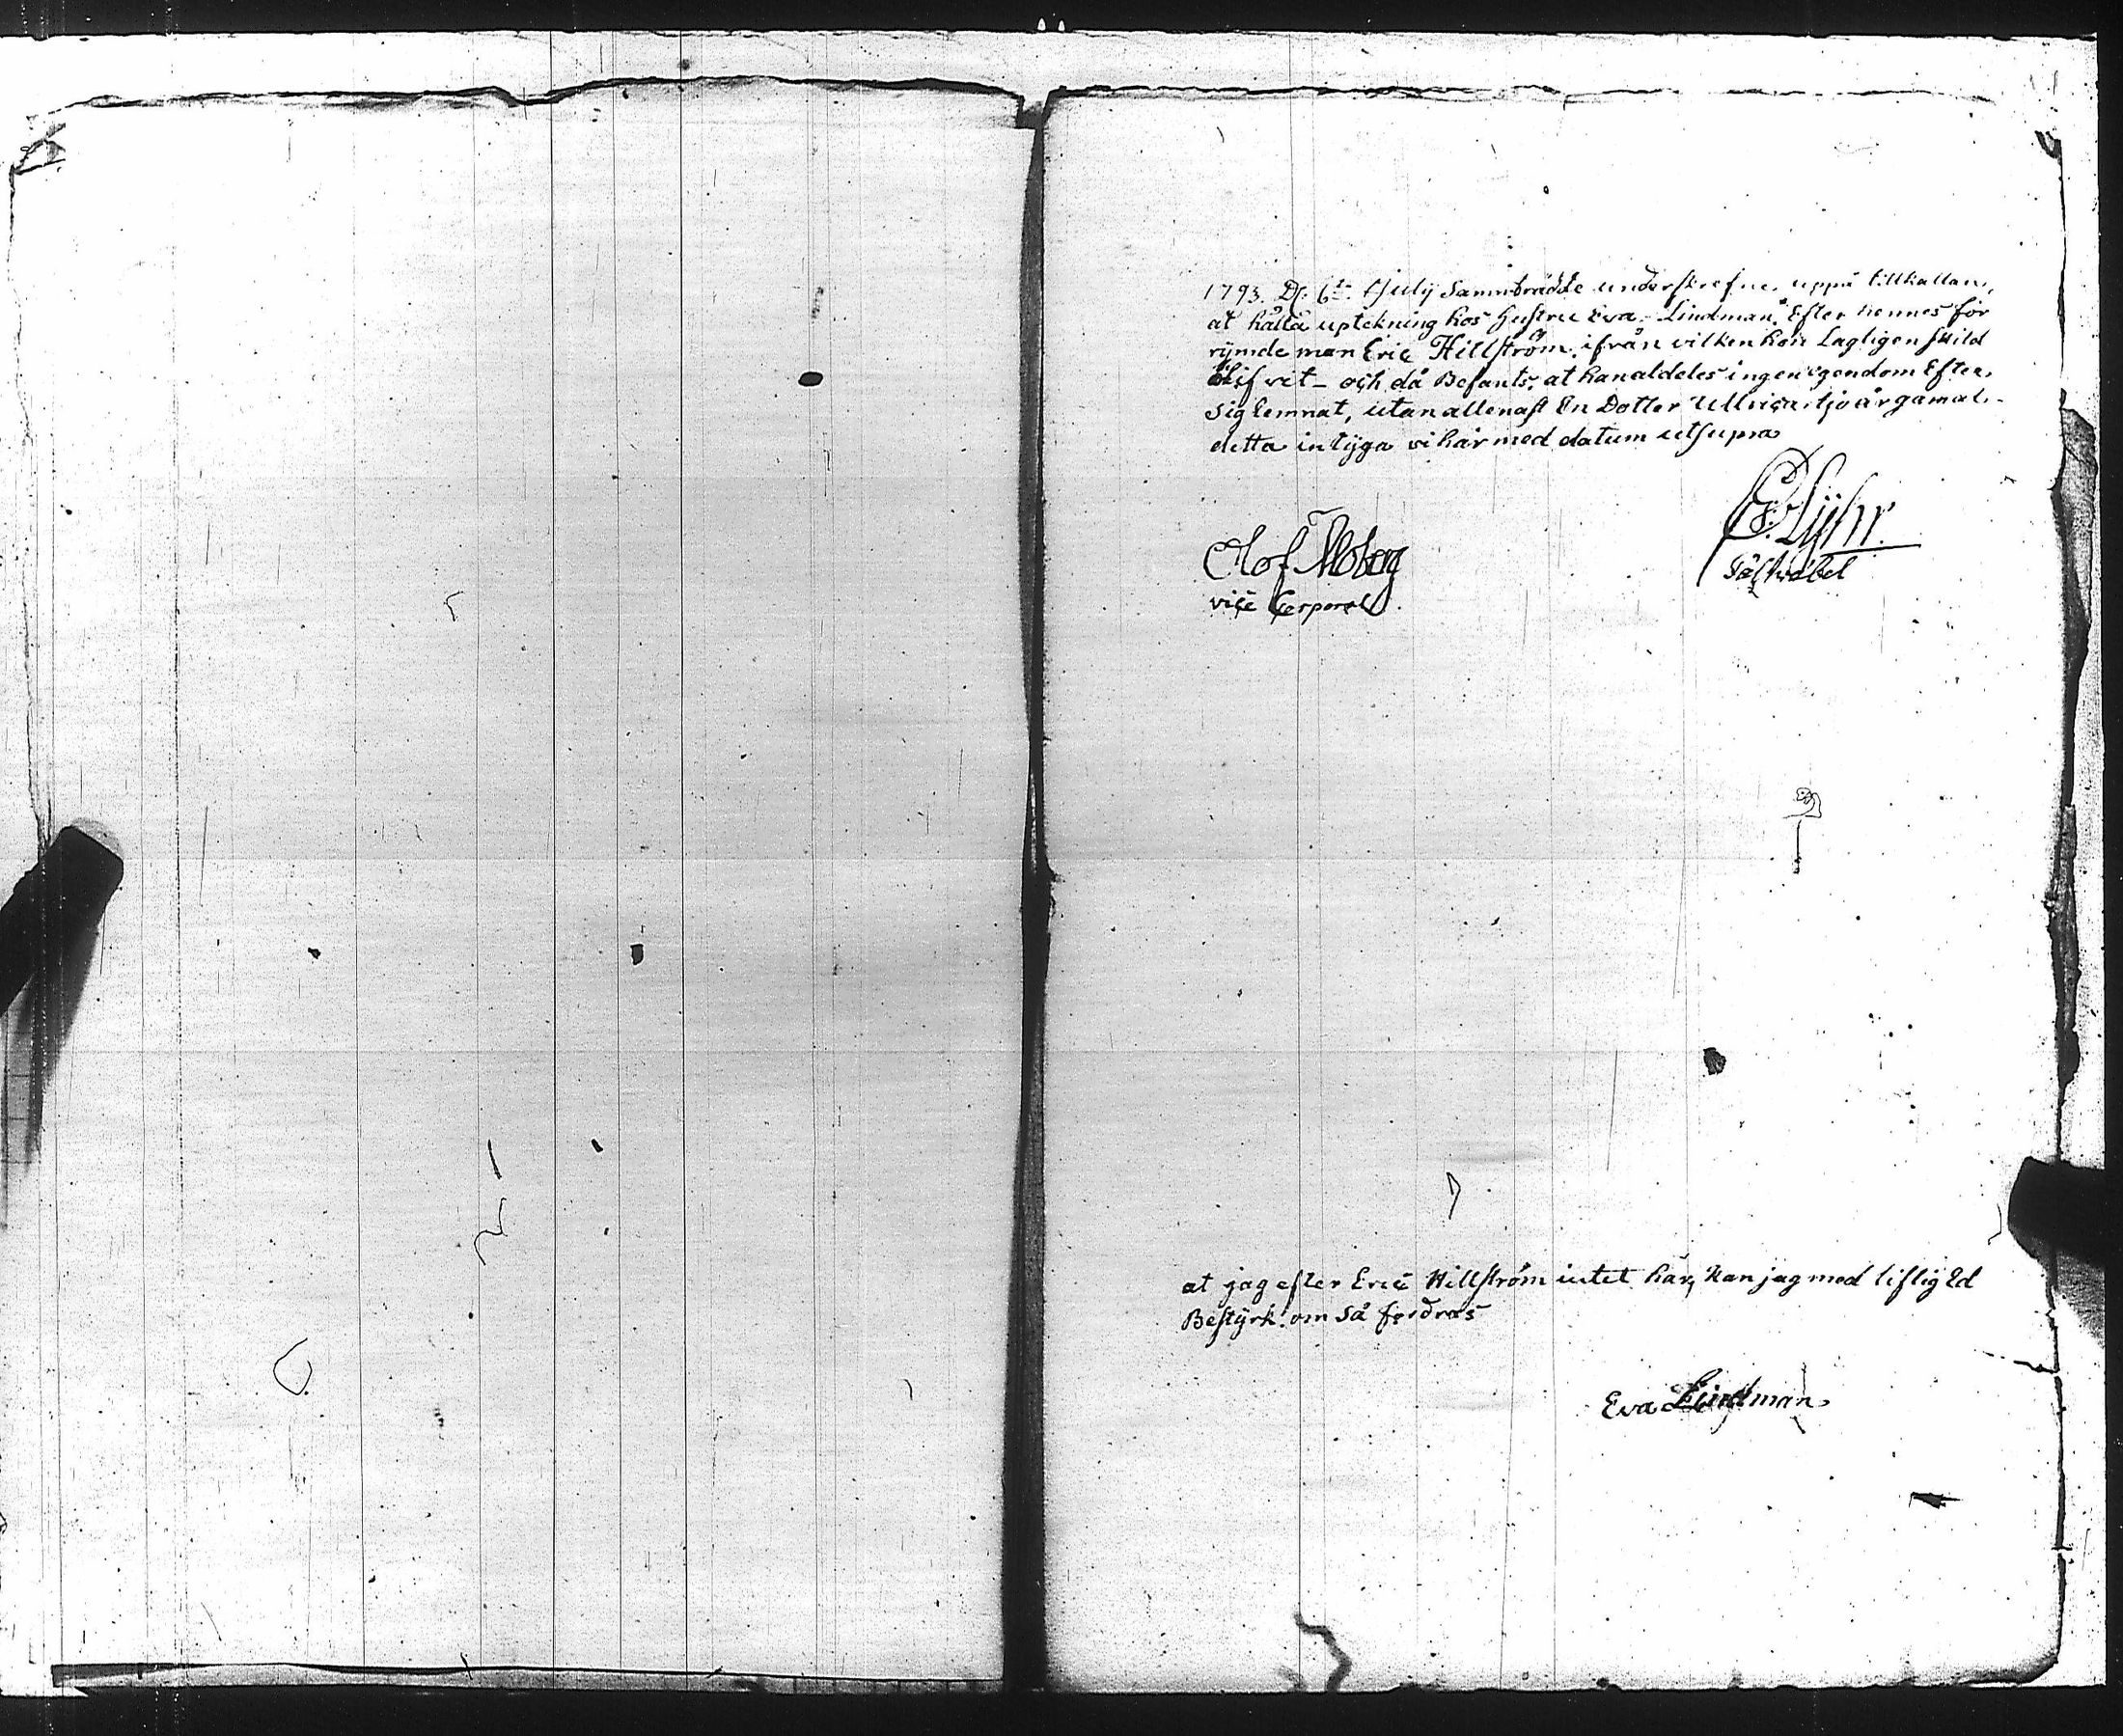 1793. D. 6te July Sammträdde underskrefne, uppå tillkallan,
at hålla uptekning hos hustru Eva Lindman, Efter hennes för
rymde man Eric Hillström, ifrån vilken hon Lagligen skild
blifvit – och då Befants, at han aldeles ingen egendom Efter
sig lemnat, utan allenast En Dotter Ullrica, tjo år gamal.
detta intyga vi här med datum utsupra
Olof Moberg
vice Corporal.
Fältväbel
at jag efter Eric Hillström intet har, kan jag med liflig Ed
Bestyrk. om så fordras
Eva Lindman